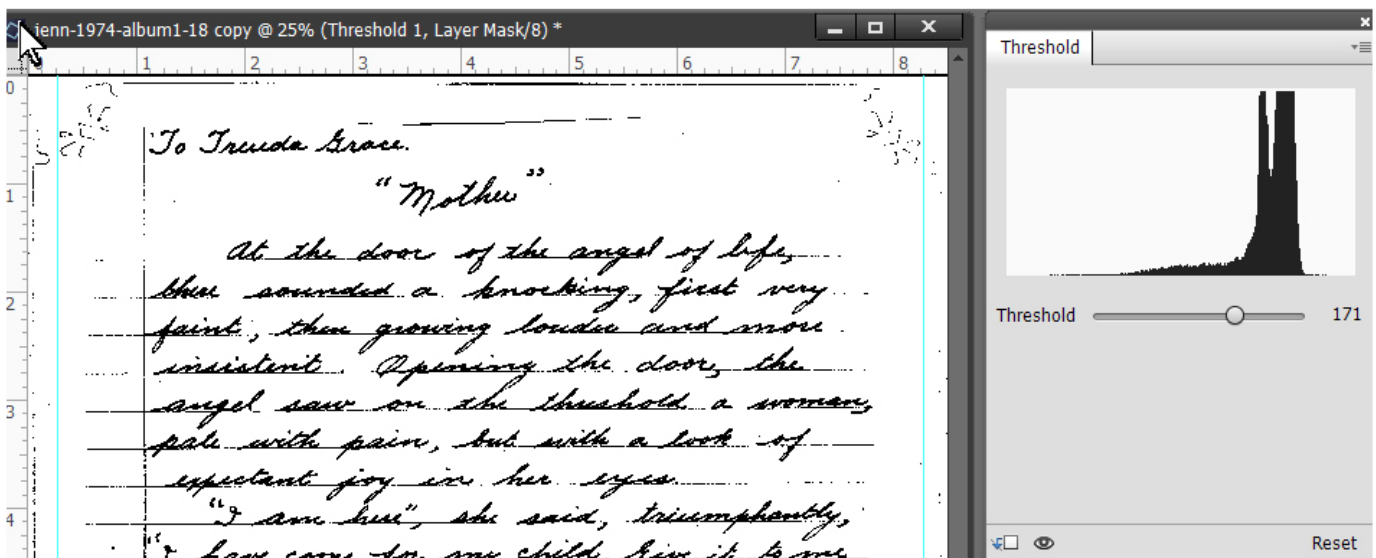 jenn-1974-album1-18 copy @ 25% (Threshold 1, Layer Mask/8) *
1 2 3 4 5 6 7 8
0
1
2
3
4
To Trenda Grace.
"Mother"
At the door of the angel of life,
there sounded a knocking, first very
faint, then growing louder and more
insistent. Opening the door, the
angel saw on the threshold a woman,
pale with pain, but with a look of
expectant joy in her eyes.
"I am here", she said, triumphantly,
"I have come for my child. Give it to me
Threshold
Threshold 171
Reset